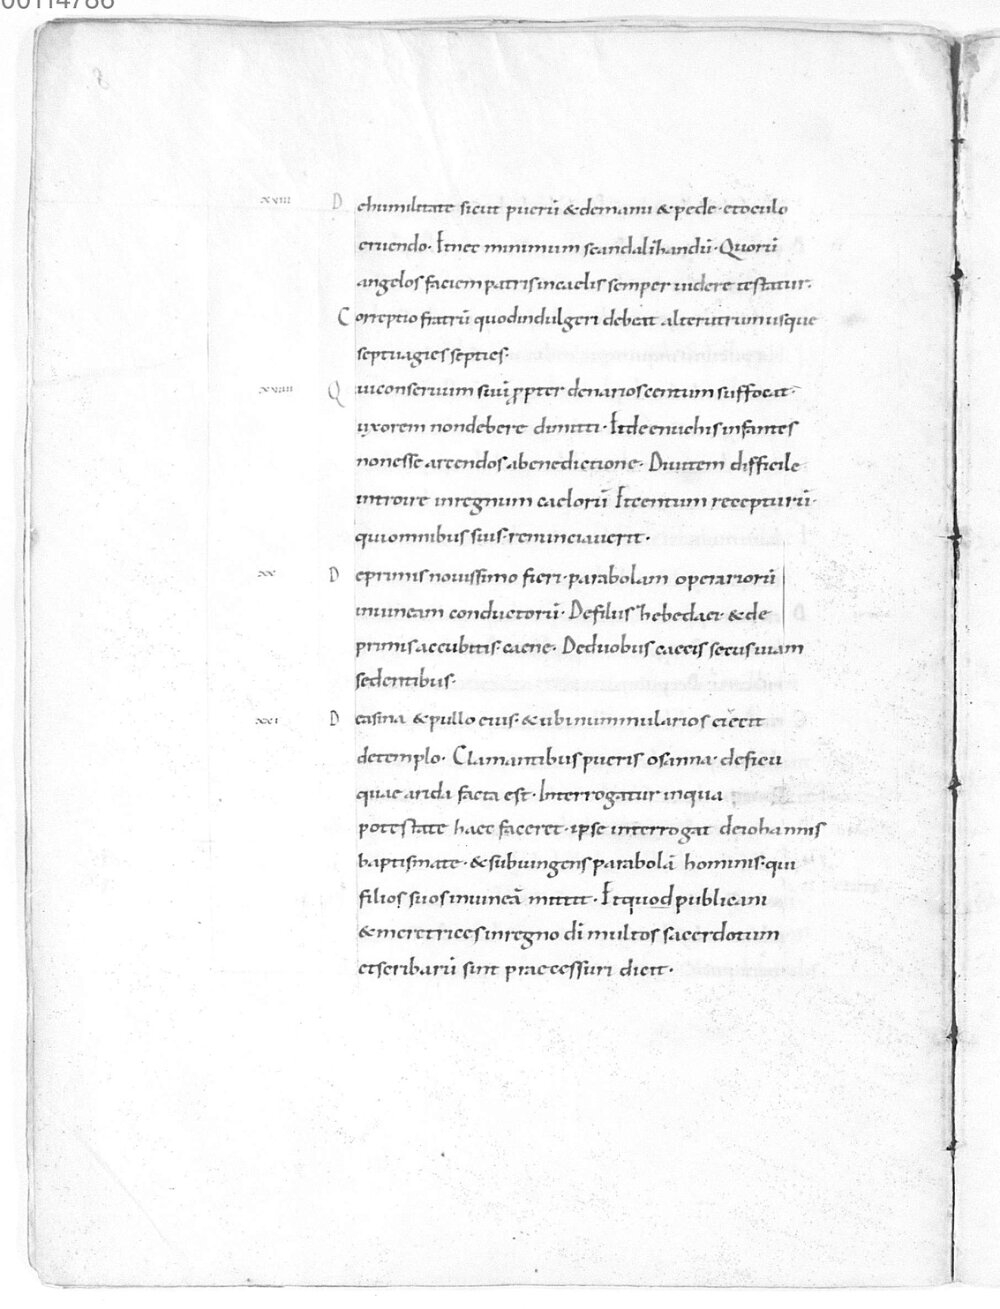 00114786
xviii D ehumilitate sicut puerū &demanu &pede· etoculo
eruendo· Itnec minimum scandalizandū· Quorū
angelos faciem patris incaelis semper uidere testatur·
Correptio fratrū quodindulgeri debeat alterutrumusque
septuagies septies·
xviiii Q uiconseruum suū ꝓpter denarios centum suffocat·
uxorem nondebere dimitti· Itde enuchis infantes
nonesse arcendos abenedictione· Diuitem difficile
introire inregnum caelorū Itcentum recepturū·
quiomnibus suis· renunciauerit·
xx D eprimis nouissimo fieri· parabolam operariorū
inuineam conductorū· Defiliis zhebedaei· &de
primis accubitis· caene· Deduobus caecis secus uiam
sedentibus·
xxi D easina &pullo eius· &ubinummularios eiecit
detemplo· Clamantibus pueris osanna· deficu
quae arida facta est· Interrogatur inqua
potestate haec faceret· ipse interrogat deiohannis
baptismate· &subiungens parabolā hominis· qui
filios suos inuineā mittit· Itquod publicani
&meretrices inregno dī multos sacerdotum
etscribarū sint praecessuri dicit·